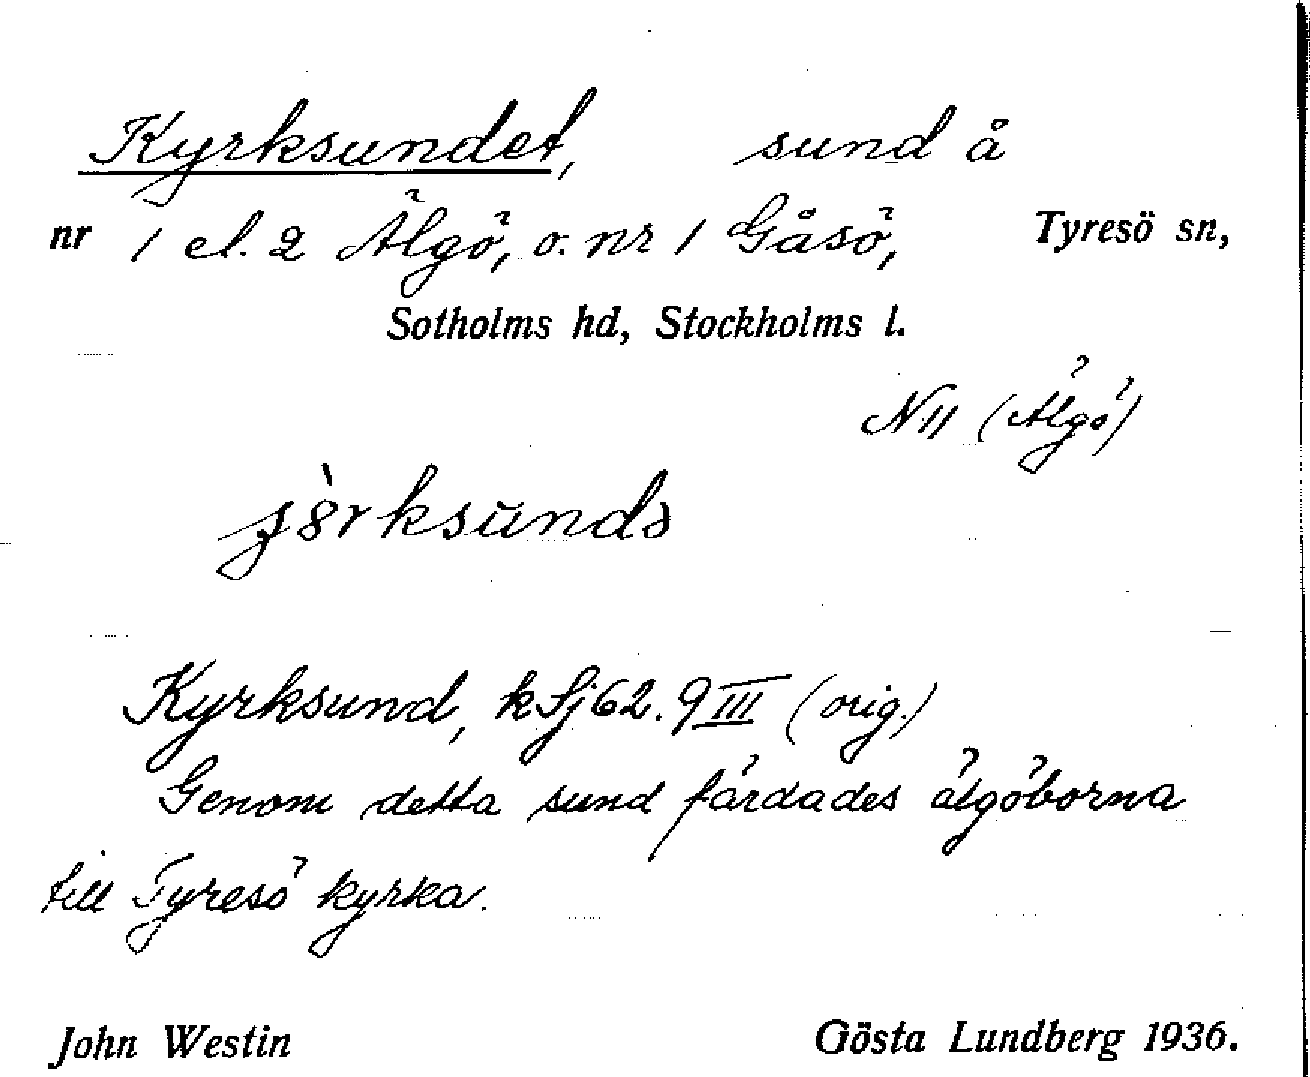 Kyrksundet, sund å
nr 1 el. 2 Älgö, o. nr 1 Gåsö, Tyresö sn,
Sotholms hd, Stockholms l.
N11 (Älgö)
Kyrksund, k Sj 62. 9 III (orig.)
Genom detta sund färdades älgöborna
till Tyresö kyrka.
John Westin Gösta Lundberg 1936.